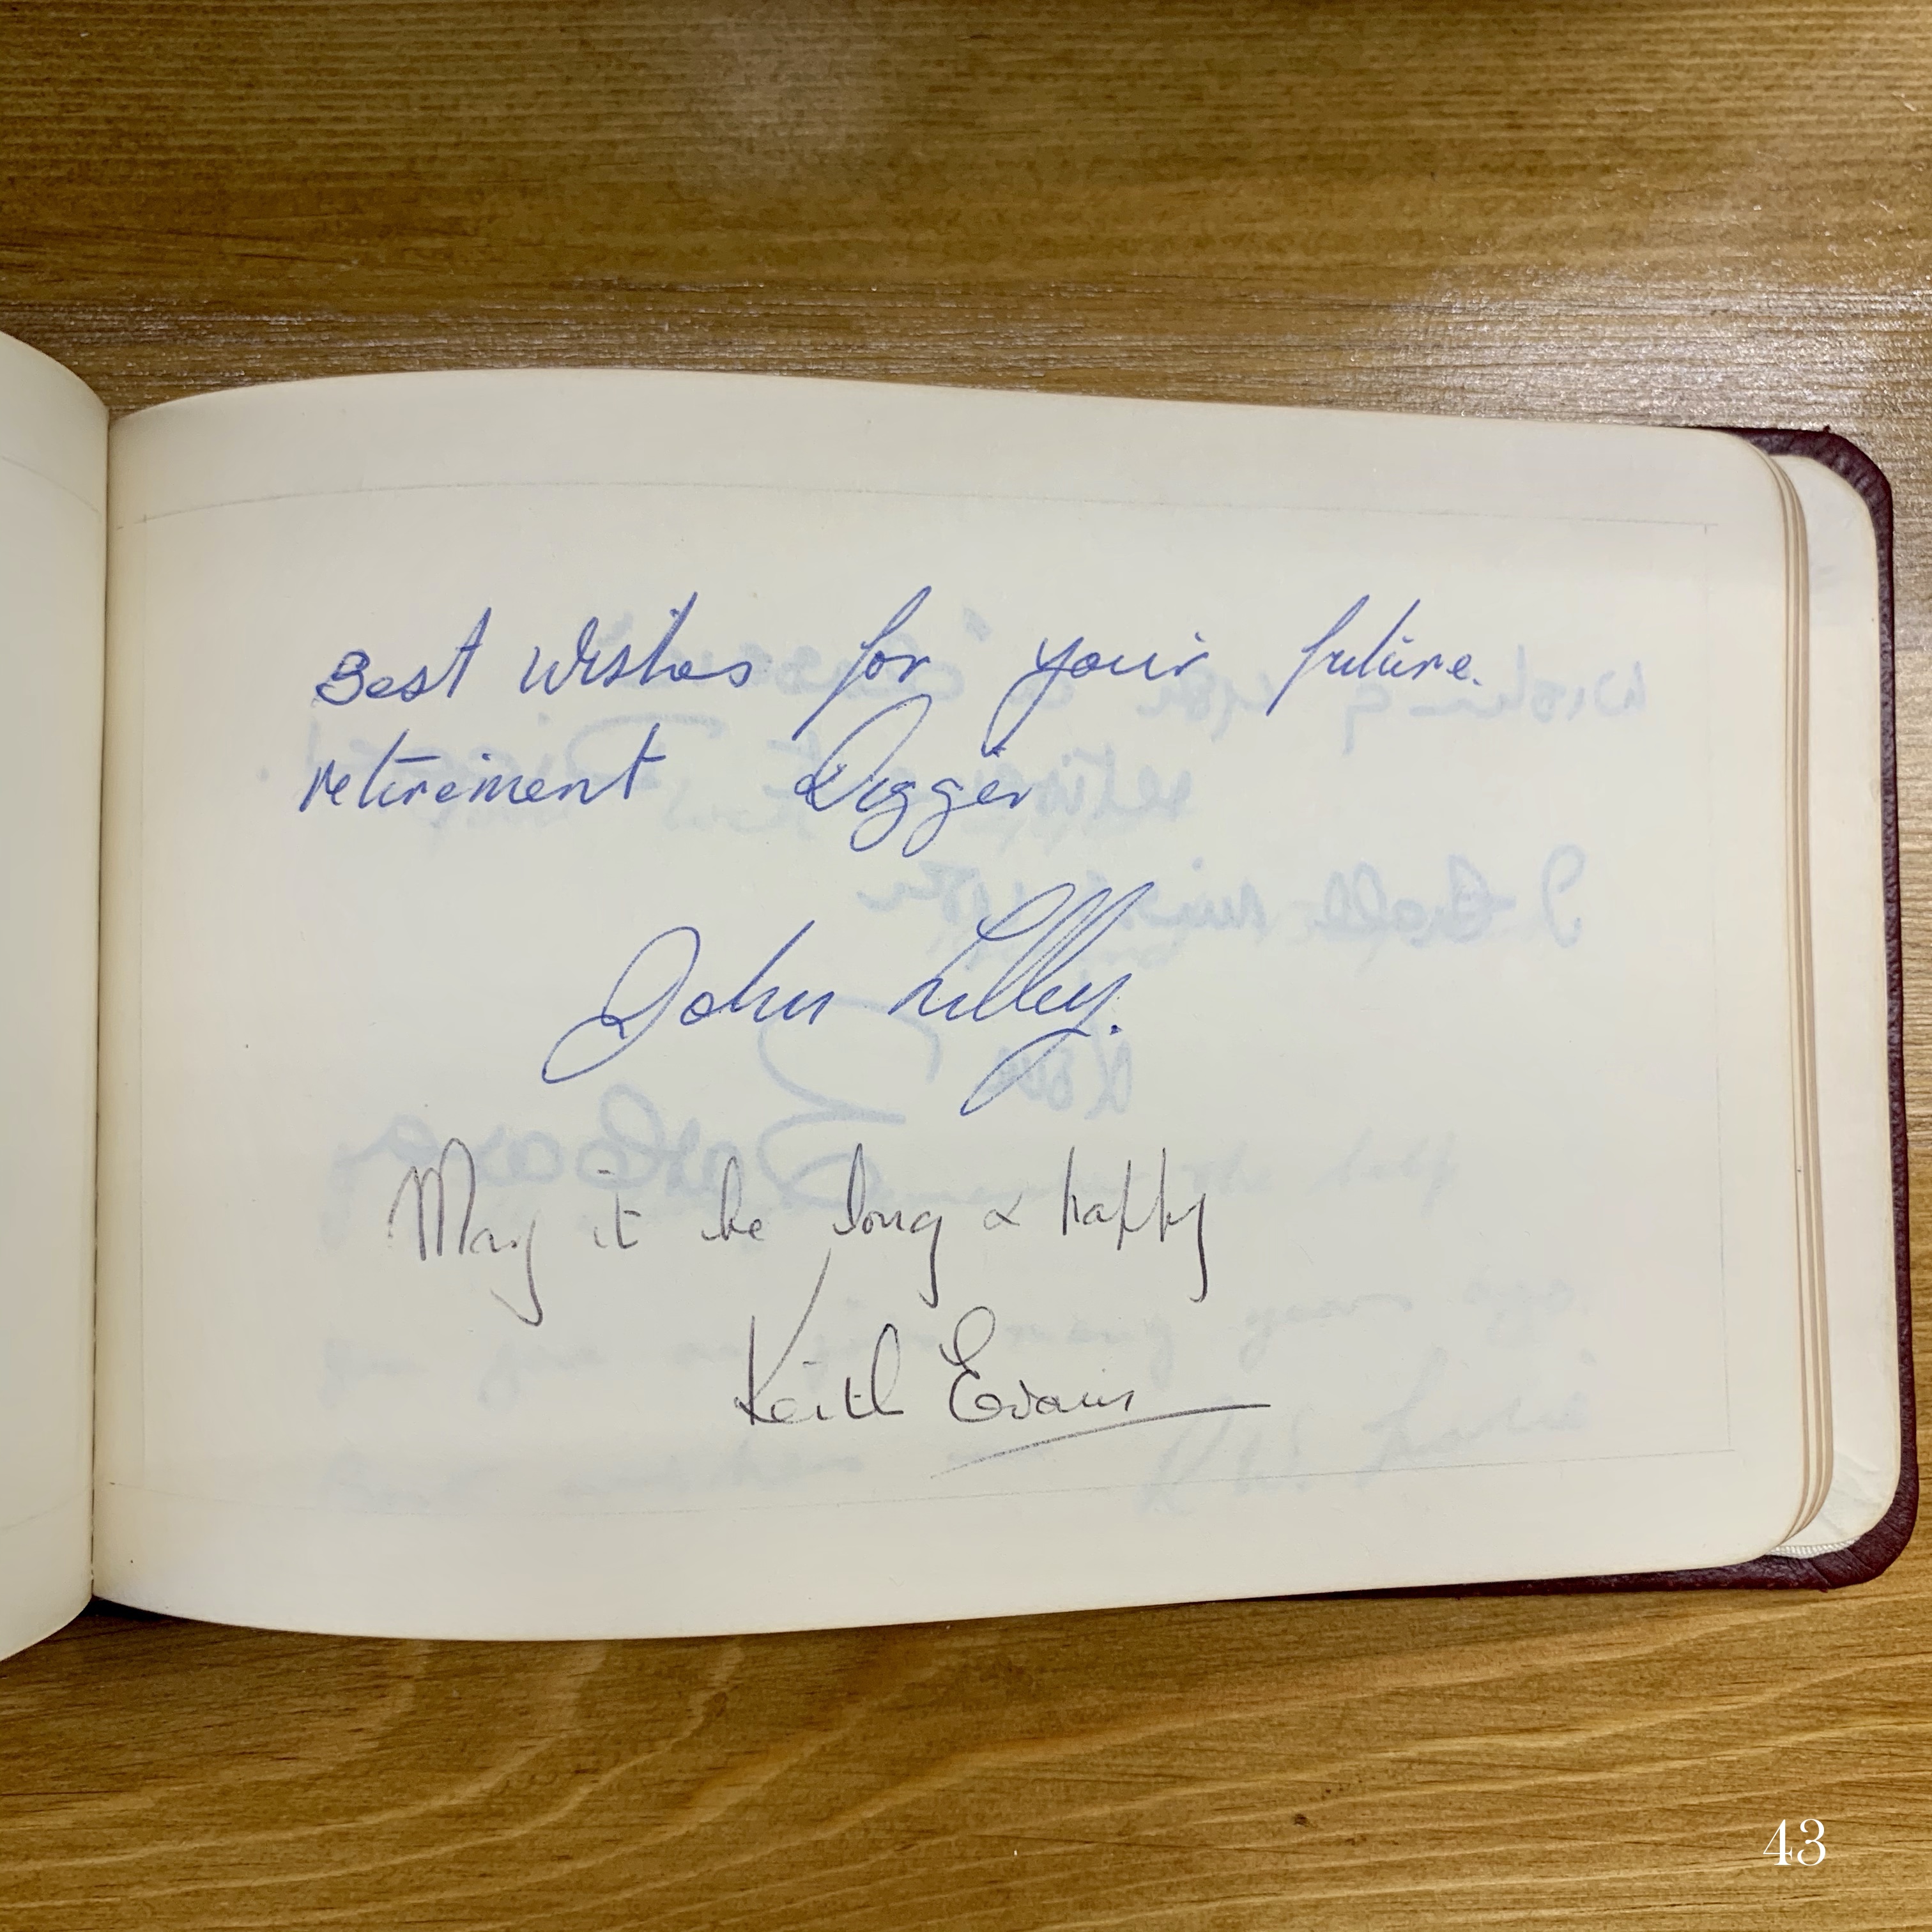 Best wishes for your future.
retirement Digger
John Lilley.
May it be long & happy
Keith Evans
43